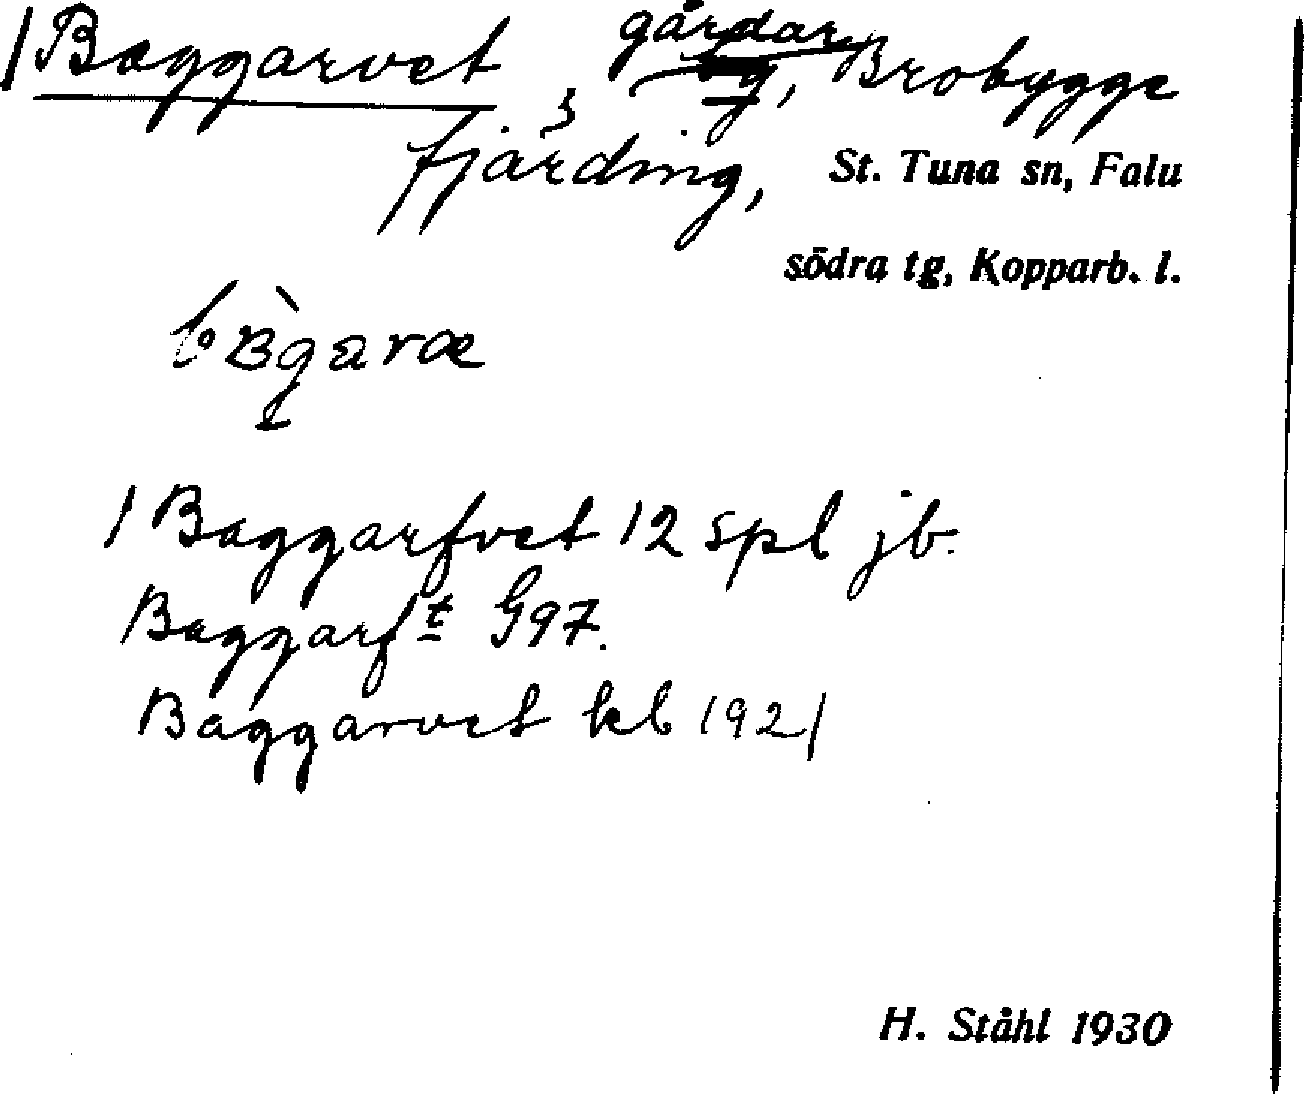 /Baggarvet, gårdar, Brobygge
fjärding, St. Tuna sn, Falu
södra tg, Kopparb. l.
/ Baggarfvet 12 spl jb.
Baggarft G97.
Baggarvet kb 1921
H. Ståhl 1930